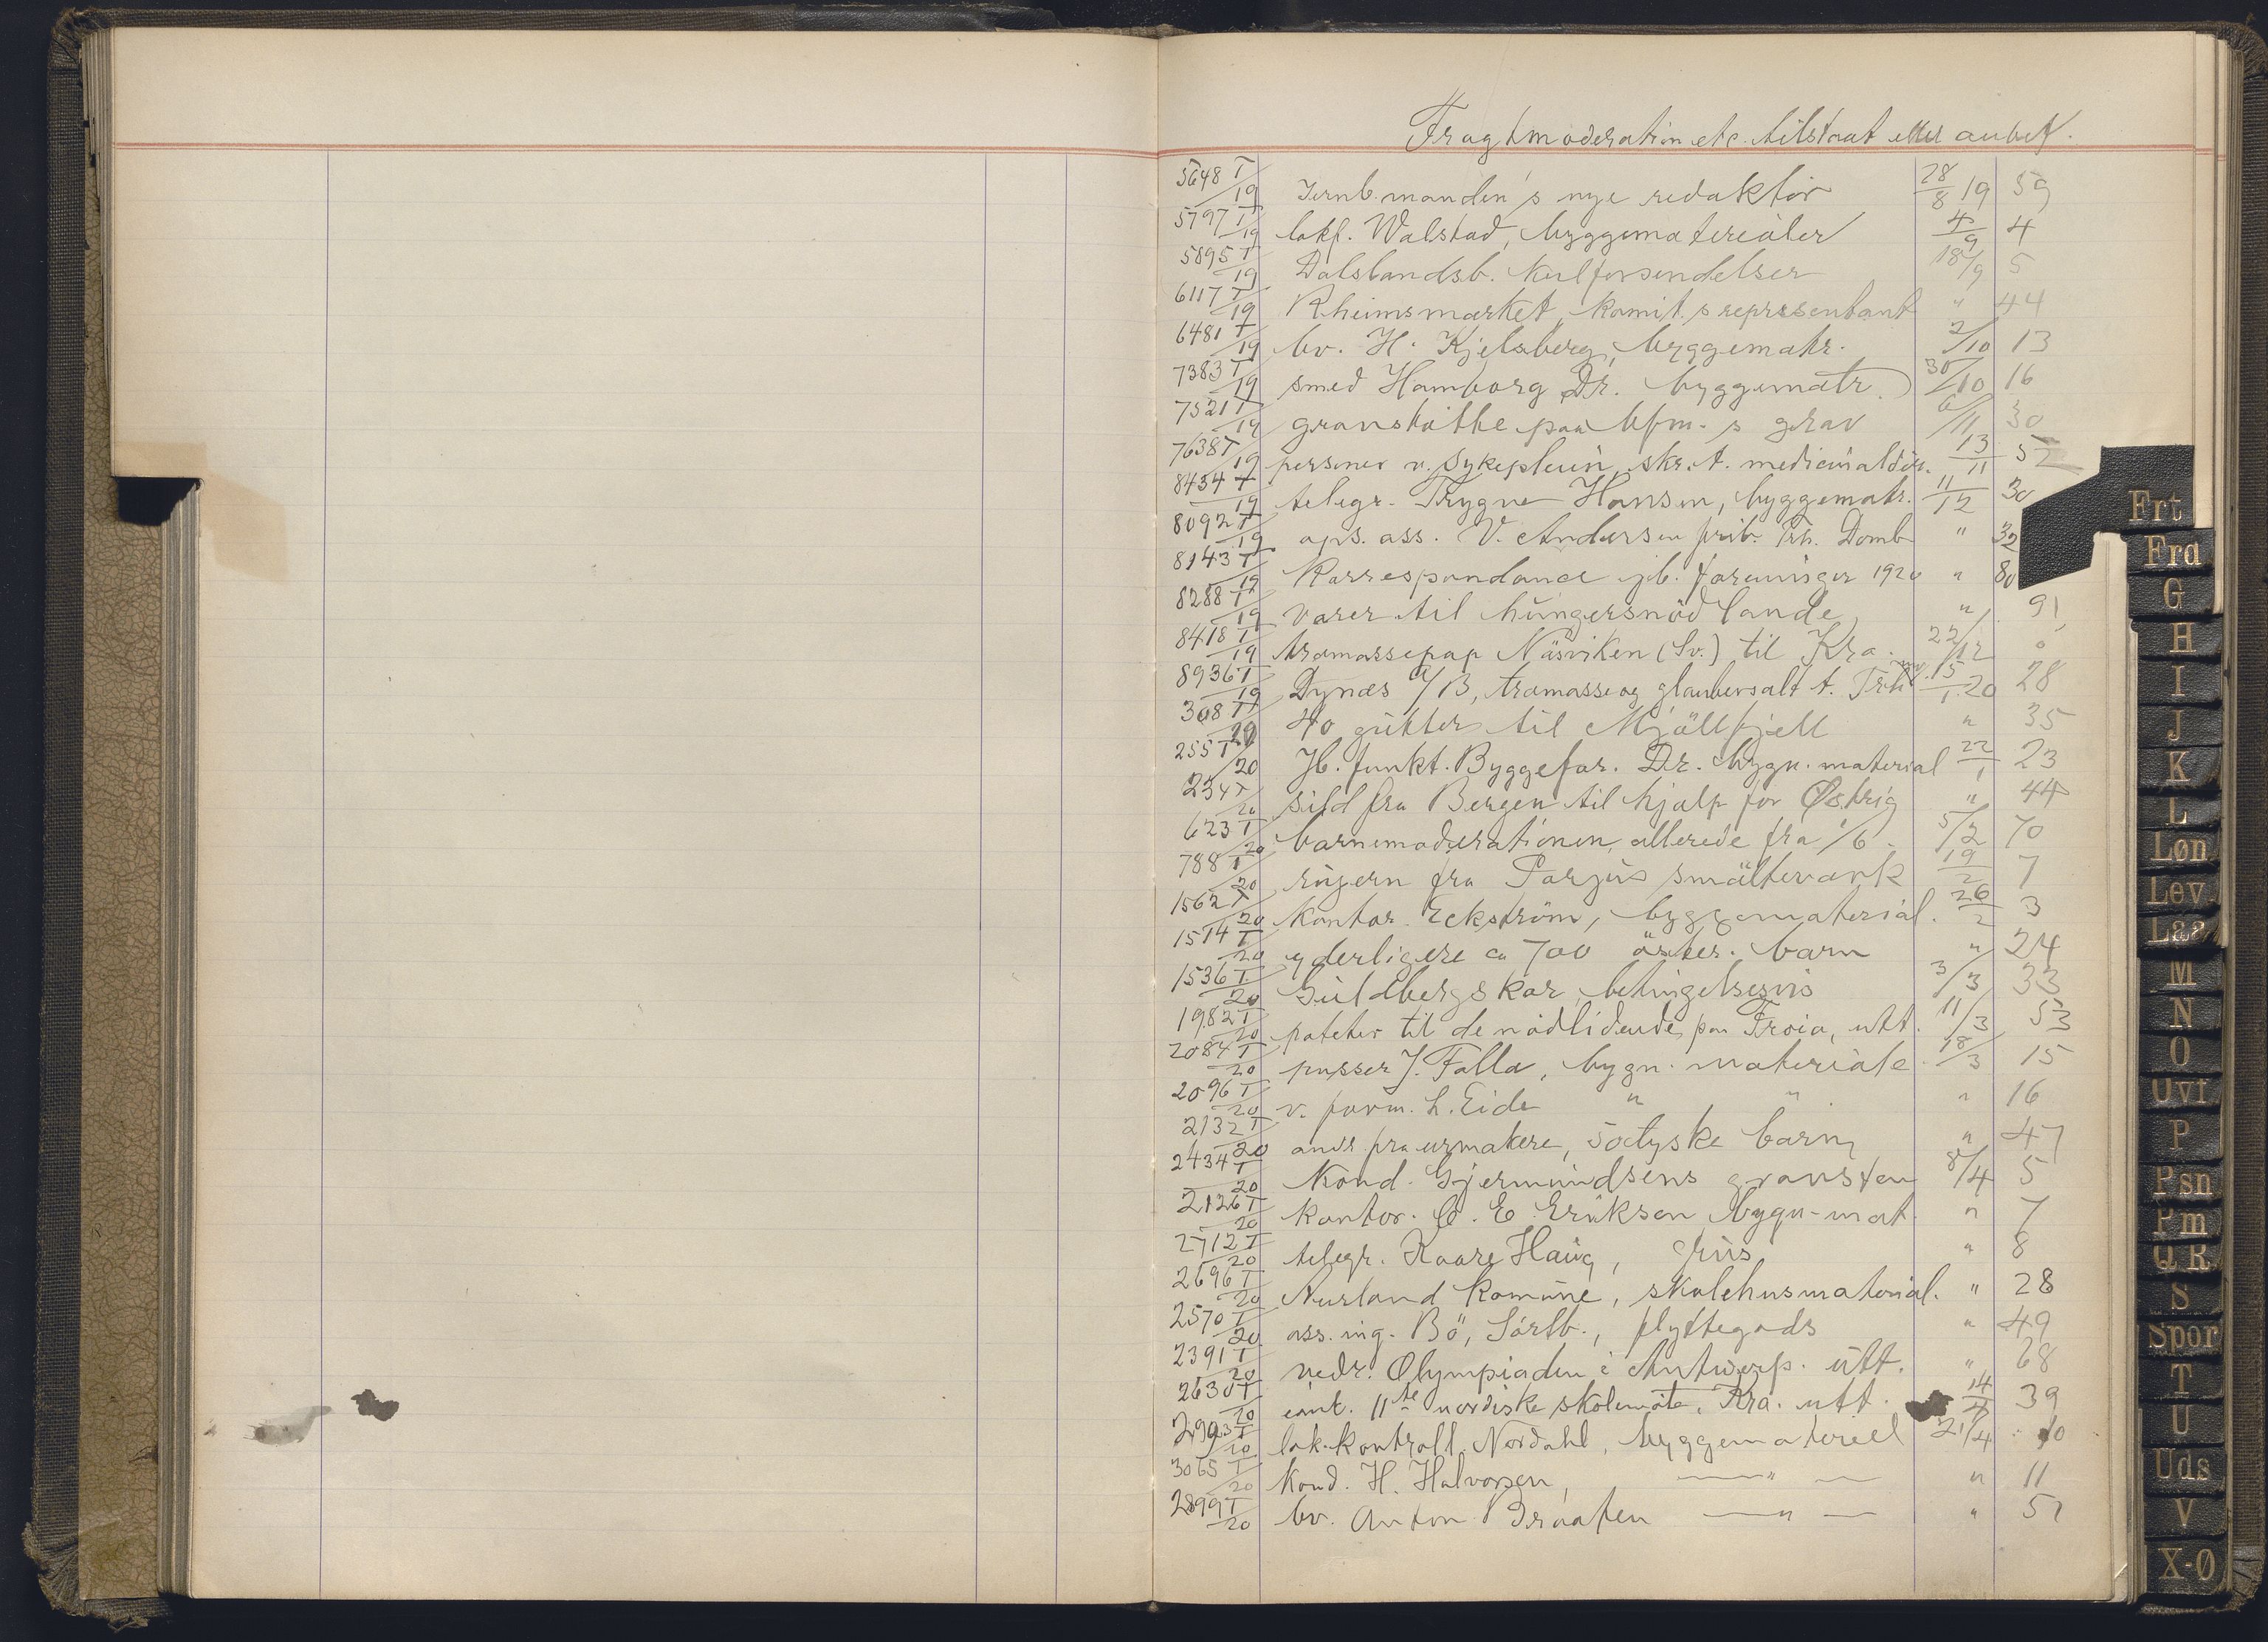 Fragtmoderation etc. tilstaat eller anbef.
5648 T/19 Jernb.manden's nye redaktör 28/8 19 59
5797 T/19 lokf. Walstad, byggematerialer 4/9 4
5895 T/19 Dalslandsb. kulforsendelser 18/9 5
6117 T/19 Rheimsmarket, komit.s representant " 44
6481 T/19 bv. H. Kjelsberg, byggematr. 2/10 13
7383 T/19 smed Hamborg Dr. byggematr. 30/10 16
7521 T/19 granstötte paa bfm.s grav 6/11 30
7638 T/19 personer v. sykepleien, skr. t. medicinaldir. 13/11 52
8434 T/19 telegr. Trygve Hansen, byggematr. 11/12 30
8092 T/19 ops. ass. V. Andersen frib. Trh. Domb " 32
8143 T/19 Korrespondance jb. foreninger 1920 " 80
8288 T/19 varer til hungersnöd lande " 91
8418 T/19 tramassepap Näsviken (Sv.) til Kra. 22/12
8936 T/19 Dynæs A/B, tramasse og glaubersalt t. Trh 15/1 20 28
308 T/20 40 gutter til Mjöllfjell " 35
255 T/20 Jb. funkt. Byggefor. Dr. bygn. material 22/1 23
234 T/20 sild fra Bergen til hjalp for Østrig " 44
623 T/20 barnemoderationen, allerede fra 1/6 5/2 70
788 T/20 rujern fra Porjus smältevark 19/2 7
1562 T/20 kontor. Eckström, byggematerial. 26/2 3
1514 T/20 yderligere ca 700 öster. barn " 24
1536 T/20 Guldbergs kor, betingelsesvis 3/3 33
1982 T/20 poteter til de nödlidende paa Froia, utt. 11/3 53
2084 T/20 pusser J. Falla, bygn. materiale 18/3 15
2096 T/20 v. form. L. Eide " " " 16
2132 T/20 andr fra urmakere, södtyske barn " 47
2434 T/20 Kond. Gjermundsens gransten 8/4 5
2126 T/20 kontor. C. E. Eriksen bygn-mat. " 7
2712 T/20 telegr. Kaare Haug, grus " 8
2696 T/20 Aurland Komune, skolehusmaterial. " 28
2570 T/20 ass. ing. Bö, Sörlb., flyttegods " 49
2391 T/20 vedr. Olympiaden i Antwerp. utt. " 68
2630 T/20 11te nordiske skolemöte, Kra. utt. 14/4 39
2903 T/20 lok. kontroll. Nordahl, byggemateriell 21/4 10
3065 T/20 Kond. H. Halvorsen, — " — " 11
2899 T/20 bv. Anton Braaten — " — " 51
Frt
Frd
G
H
I
J
K
L
Løn
Lev
Laa
M
N
O
Ovf
P
Psn
Pm
Q R
S
Spor
T
U
Uds
V
X-Ø